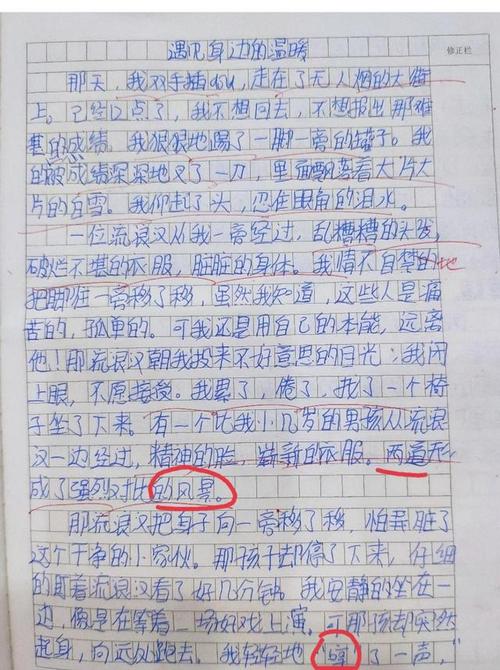 遇见身边的温暖
修正栏
那天，我双手插dōu，走在了无人烟的大街
上。已经12点了，我不想回去，不想报出那难
堪的成绩。我狠狠地踢了一脚一旁的罐子。我
的被成绩深深地叉了一刀，里面飘荡着大片大
片的白雪。我仰起了头，忍住眼角的泪水。
一位流浪汉从我一旁经过，乱糟糟的头发，
破烂不堪的衣服，脏脏的身体。我情不自禁的地
把脚往一旁移了移，虽然我知道，这些人是痛
苦的，孤单的。可我还是用自己的本能，远离
他！那流浪汉朝我投来不好意思的目光：我闭
上眼，不愿接受。我累了，倦了，找了一个椅
子坐了下来。有一个比我小几岁的男孩从流浪
汉一边经过，精神的脸，崭新的衣服。两道形
成了强烈对比的风景。
那流浪汉把身子向一旁移了移，怕弄脏了
这个干净的小家伙。那孩子却停了下来，仔细
的盯着流浪汉看了好几分钟。我安静的坐在一
边，像是在等着一场好戏上演，可那孩却突然
起身，向远处跑去。我轻轻地"呵"了一声，